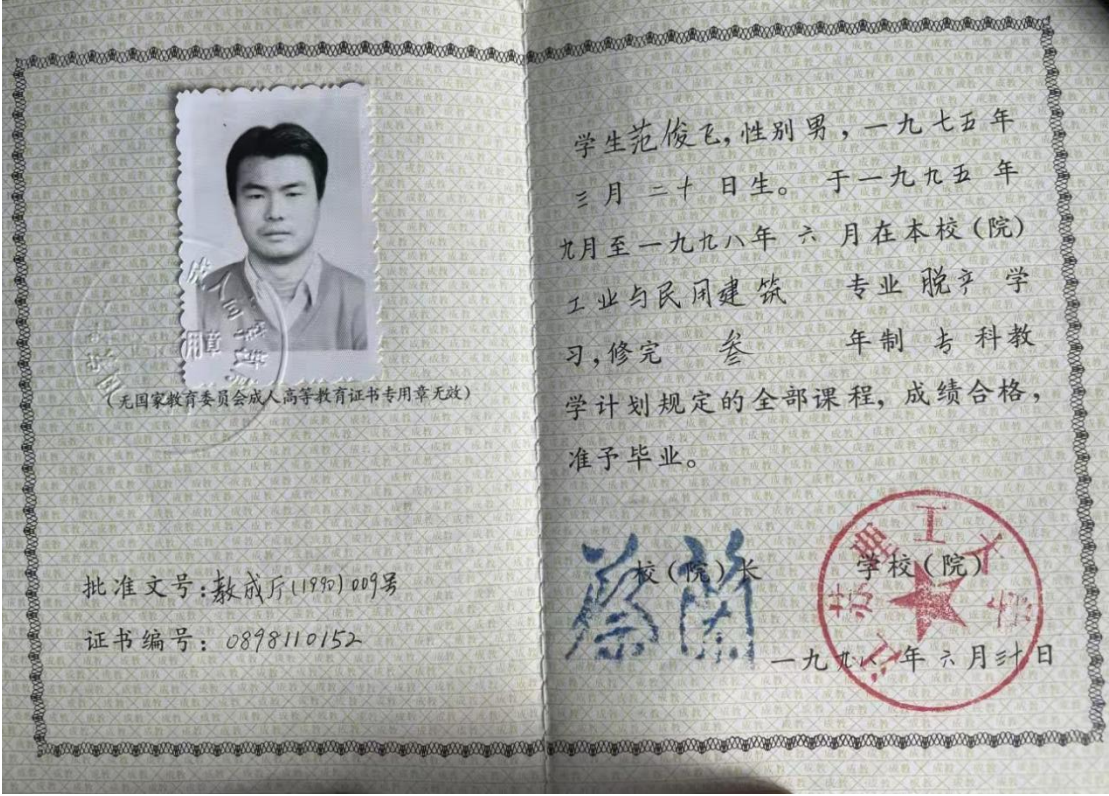 (无国家教育委员会成人高等教育证书专用章无效)
批准文号:教成厅(1990)009号
证书编号:0898110152
学生范俊飞,性别男,一九七五年
三月二十日生。于一九九五年
九月至一九九八年六月在本校(院)
工业与民用建筑 专业脱产学
习,修完 叁 年制专科教
学计划规定的全部课程,成绩合格,
准予毕业。
校(院)长 学校(院)
蔡兰
江苏理工大学
一九九八年六月三十日